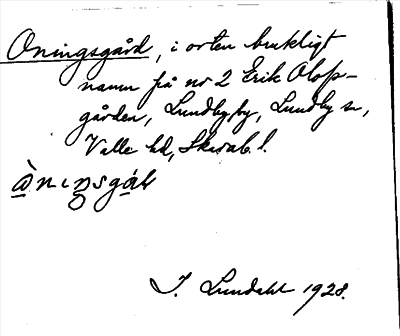 Oningsgård, i orten brukligt
namn på nr 2 Erik Olofs-
gården, Lundby by, Lundby sn,
Valle hd, Skarab. l.
I. Lundahl 1928.